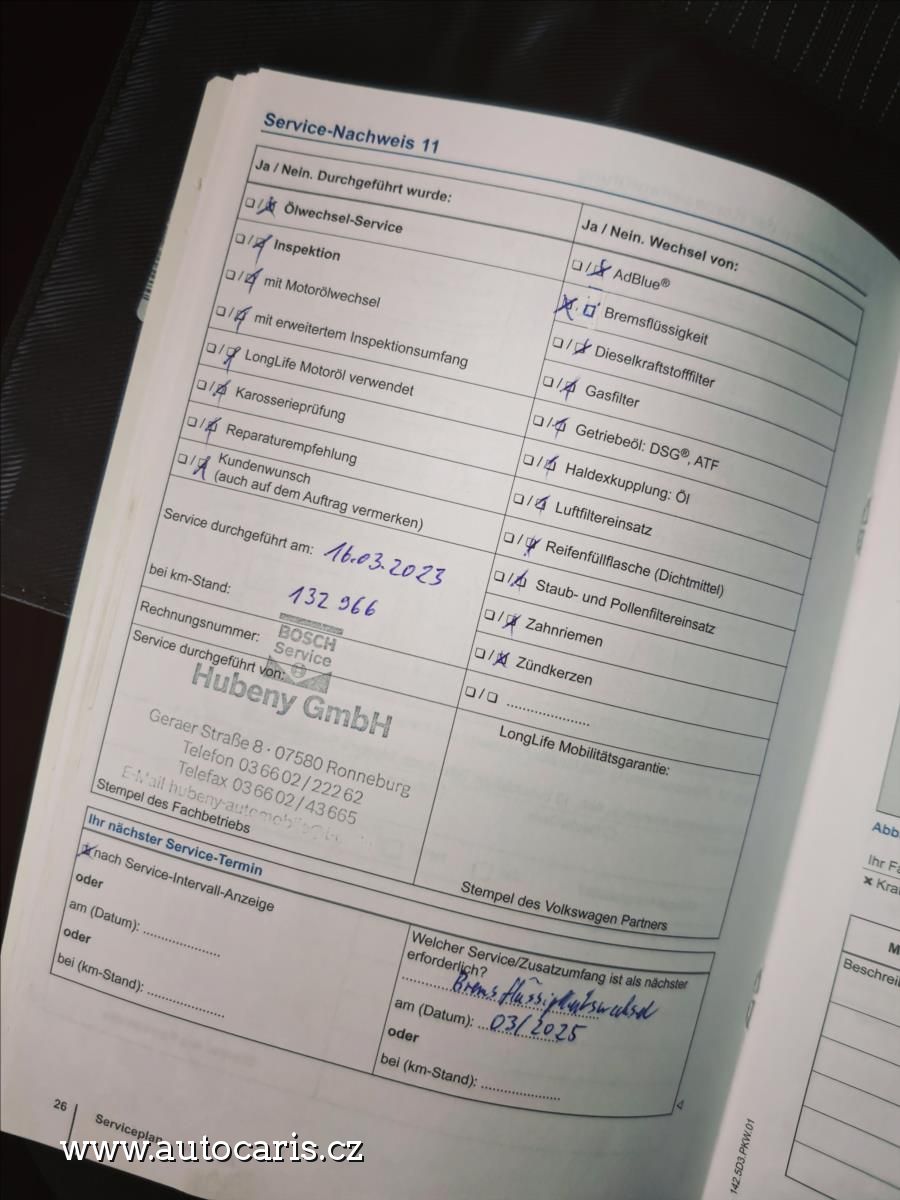 Service-Nachweis 11
Ja / Nein. Durchgeführt wurde:
❏ / ❏ Ölwechsel-Service
❏ / ❏ Inspektion
❏ / ❏ mit Motorölwechsel
❏ / ❏ mit erweitertem Inspektionsumfang
❏ / ❏ LongLife Motoröl verwendet
❏ / ❏ Karosserieprüfung
❏ / ❏ Reparaturempfehlung
❏ / ❏ Kundenwunsch
(auch auf dem Auftrag vermerken)
Service durchgeführt am: 16.03.2023
bei km-Stand: 132 966
Rechnungsnummer:
Service durchgeführt von:
BOSCH
Service
Hubeny GmbH
Geraer Straße 8 · 07580 Ronneburg
Telefon 03 66 02 / 222 62
Telefax 03 66 02 / 43 665
E-Mail hubeny-automobile@
Stempel des Fachbetriebs
Ja / Nein. Wechsel von:
❏ / ❏ AdBlue®
❏ / ❏ Bremsflüssigkeit
❏ / ❏ Dieselkraftstofffilter
❏ / ❏ Gasfilter
❏ / ❏ Getriebeöl: DSG®, ATF
❏ / ❏ Haldexkupplung: Öl
❏ / ❏ Luftfiltereinsatz
❏ / ❏ Reifenfüllflasche (Dichtmittel)
❏ / ❏ Staub- und Pollenfiltereinsatz
❏ / ❏ Zahnriemen
❏ / ❏ Zündkerzen
❏ / ❏ ....................
LongLife Mobilitätsgarantie:
Stempel des Volkswagen Partners
Ihr nächster Service-Termin
nach Service-Intervall-Anzeige
oder
am (Datum): ..................
oder
bei (km-Stand): ..................
Welcher Service/Zusatzumfang ist als nächster
erforderlich?
Bremsflüssigkeitswechsel
am (Datum): 03/2025
oder
bei (km-Stand): ..................
26
Serviceplan
142.5D3.PKW.01
Abb
Ihr Fa
× Kra
M
Beschrei
www.autocaris.cz